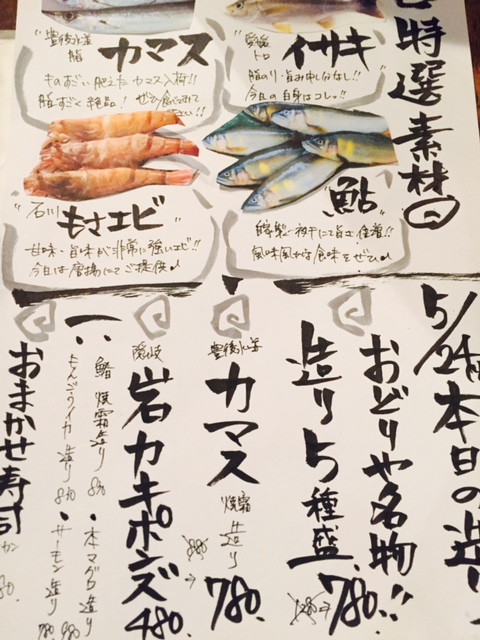 特選素材
愛媛
トロ
イサキ
脂のり・旨み申し分なし!!
今日の白身はコレっ!!
豊後水道
脂
カマス
ものすごい肥えたカマス入荷!!
脂すごく絶品! ぜひ食べられて
ください!!
"鮎"
風味豊かな食味をぜひ♪
"石川"
もさエビ
甘味・旨味が非常に強いエビ!!
今日は唐揚にてご提供♪
5/24 本日の造り
おどりや名物!!
造り5種盛 1280→780.
豊後水道
カマス 焼霜造り 880→780.
岩カキポンズ 480.
・鰆焼霜造り 830
・もんごうイカ造り 830
・本マグロ造り 980
・サーモン造り 780
おまかせ寿司